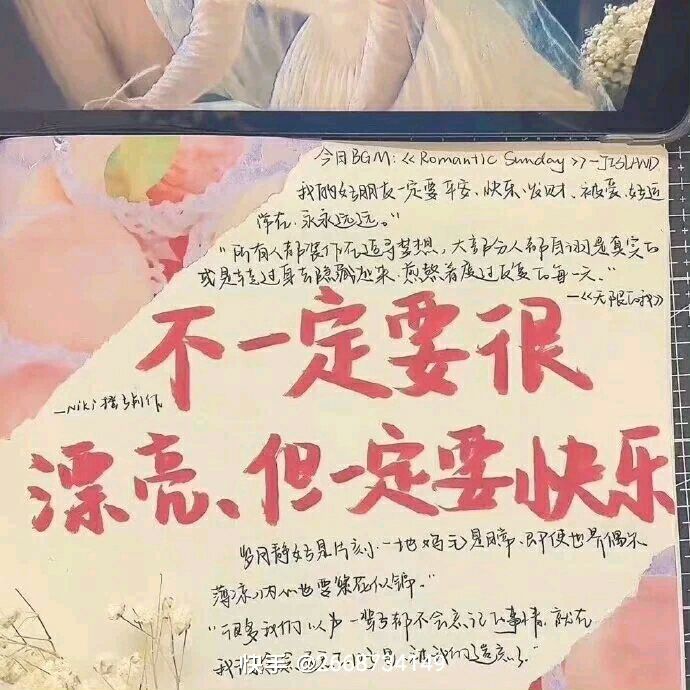 今日BGM:《Romantic Sunday》-JISLAND
我的好朋友一定要平安、快乐、发财、被爱、好运
常在、永永远远。"
"所有人都假作在追寻梦想,大部分人都自诩是真实的
或是转过身去隐藏起来,煎熬着度过反复的每一天."
—《无限的我》
不一定要很
—Niki搭子制作
漂亮、但一定要快乐
岁月静好是片刻,一地鸡毛是日常,即使世界偶尔
薄凉,内心也要繁花似锦。"
"很多我们以为一辈子都不会忘记的事情,就在
我们念念不忘的日子里,被我们遗忘了."
快手 @2668734149